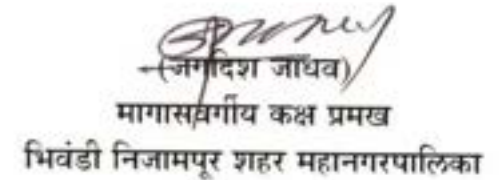 (जगदिश जाधव)
मागासवर्गीय कक्ष प्रमख
भिवंडी निजामपूर शहर महानगरपालिका